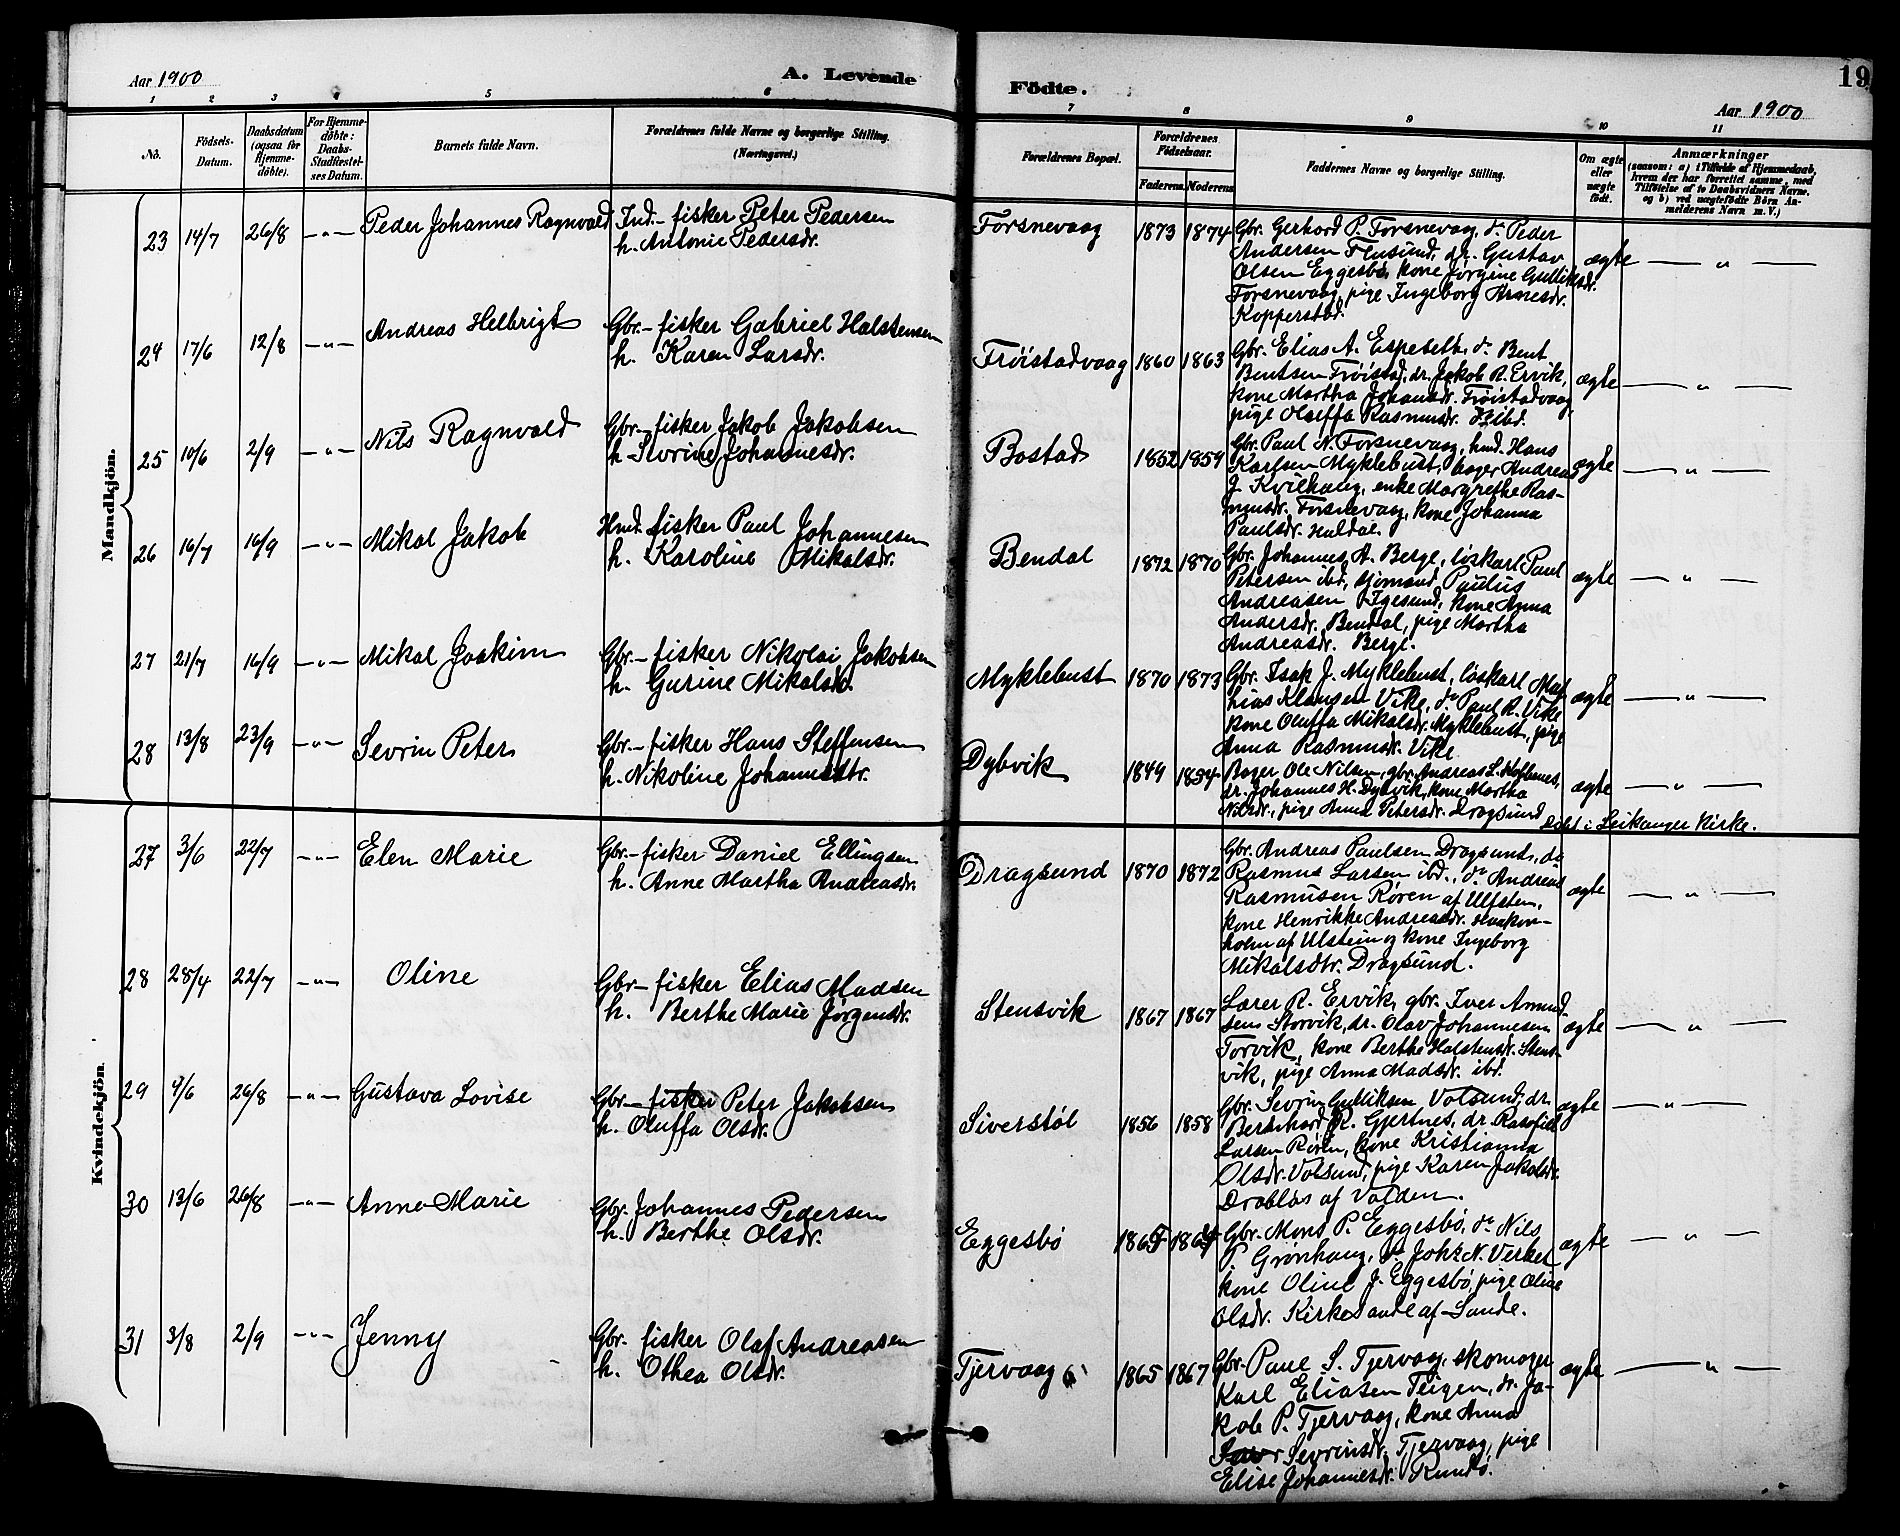 Aar 1900
A. Levende
Födte.
19
Aar 1900
1 2 3 4 5 6 7 8 9 10 11
No.
Födsels-
Datum.
Daabsdatum
(ogsaa for
Hjemme-
döbte).
For Hjemme-
döbte:
Daabs-
Stadfæstel-
ses Datum.
Barnets fulde Navn.
Forældrenes fulde Navne og borgerlige Stilling.
(Næringsvei.)
Forældrenes Bopæl.
Forældrenes
Födselsaar.
Faderens. Moderens
Faddernes Navne og borgerlige Stilling.
Om ægte
eller
uægte
födt.
Anmærkninger
(saasom: a) i Tilfælde af Hjemmedaab,
hvem der har forrettet samme, med
Tilföielse af to Daabsvidners Navne.
og b) ved uægtefödte Börn An-
melderens Navn m. V.)
Mandkjön.
23 14/7 26/8 -"- Peder Johannes Ragnvald
Ind.- fisker Peter Pedersen
h. Antonie Pedersdr.
Forsnevaag 1873 1874
Gbr. Gerhard P. Forsnevaag, do Peder
Andersen Flusund, dr. Gustav
Olsen Eggesbø, kone Jørgine Gulliksdr.
Forsnevaag, pige Ingeborg Arnesdr.
Kopperstad.
ægte — " —
24 17/6 12/8 -"- Andreas Helbrigt
Gbr.- fisker Gabriel Halstensen
h. Karen Larsdr.
Frøistadvaag 1860 1863
Gbr. Elias A. Espeseth, do Bent
Bentsen Frøistad, dr. Jakob R. Ervik,
kone Martha Johansdr. Frøistadvaag,
pige Oluffa Rasmusdr. ibd.
ægte — " —
25 10/6 2/9 -"- Nils Ragnvald
Gbr.- fisker Jakob Jakobsen
h. Sevrine Johannesdr.
Bostad 1852 1859
Gbr. Paul N. Forsnevaag, hmd. Hans
Karlsen Myklebust, bager Andreas
J. Kvilhaug, enke Margrethe Ras-
musdr. Forsnevaag, kone Johanna
Paulsdr. Huldal.
ægte — " —
26 16/7 16/9 -"- Mikal Jakob
Hmd. fisker Paul Johannesen
h. Karoline Mikalsdr.
Bendal 1872 1870
Gbr. Johannes A. Berge, løskarl Paul
Petersen ibd, sjømand Paulus
Andreasen Igesund, kone Anna
Andersdr. Bendal, pige Martha
Andreasdr. Berge.
ægte — " —
27 21/7 16/9 -"- Mikal Joakim
Gbr.- fisker Nikolai Jakobsen
h. Gurine Mikalsdr.
Myklebust 1870 1873
Gbr. Isak J. Myklebust, løskarl Mat
hias Klausen Vike, do Paul R. Vike
kone Oluffa Mikalsdr. Myklebust, pige
Anna Rasmusdr. Vike
ægte — " —
28 13/8 23/9 -"- Sevrin Peter
Gbr.- fisker Hans Steffensen
h. Nikoline Johannesdtr.
Dybvik 1849 1854
Bager Ole Nilsen, gbr. Andreas L.
dr. Johannes H. Dybvik, kone Martha
Nilsdr., pige Anna Petersdr. Dragsund
ægte — " —
Døbt i Leikanger kirke.
Kvindekjön.
27 3/6 22/7 -"- Elen Marie
Gbr.- fisker Daniel Ellingsen
h. Anne Martha Andreasdr.
Dragsund 1870 1872
Gbr. Andreas Paulsen Dragsund, do
Rasmus Larsen ibd., do Andreas
Rasmusen Røren af Ulsten,
kone Henrikke Andreasdr. Haakon-
holm af Ulstein og kone Ingeborg
Mikalsdtr. Dragsund.
ægte — " —
28 28/4 22/7 -"- Oline
Gbr.- fisker Elias Madsen
h. Berthe Marie Jørgensdr.
Stensvik 1867 1867
Lærer R. Ervik, gbr. Iver Amund
sen Storvik, dr. Olav Johannesen
Torvik, kone Berthe Halstensdr. Stens-
vik, pige Anna Madsdr. ibd.
ægte — " —
29 4/6 26/8 -"- Gustava Lovise
Gbr.- fisker Peter Jakobsen
h. Oluffa Olsdr.
Siverstøl 1856 1858
Gbr. Sevrin Gulliksen Volsund, dr.
Bernhard K. Gjertnes, dr. Rasofiel
Larsen Røren, kone Kristianna
Olsdr. Volsund, pige Karen Jakobsdr.
Drabløs af Volden.
ægte — " —
30 13/6 26/8 -"- Anne Marie
Gbr. Johannes Pedersen
h. Berthe Olsdr.
Eggesbø
Gbr. Mons P. Eggesbø, do Nils
P. Grønhaug, do Johs N. Verket
kone Oline J. Eggesbø, pige Oline
Olsdr. Kirkesande af Sande.
ægte — " —
31 3/8 2/9 -"- Jenny
Gbr. fisker Olaf Andreasen
h. Othea Olsdr.
Tjervaag 1865 1867
Gbr. Paul S. Tjervaag, skomager
Karl Eliasen Teigen, dr. Ja-
kob P. Tjervaag, kone Anna
Sevrinsdr. Tjervaag, pige
Elise Johannesdr. Rundø.
ægte — " —